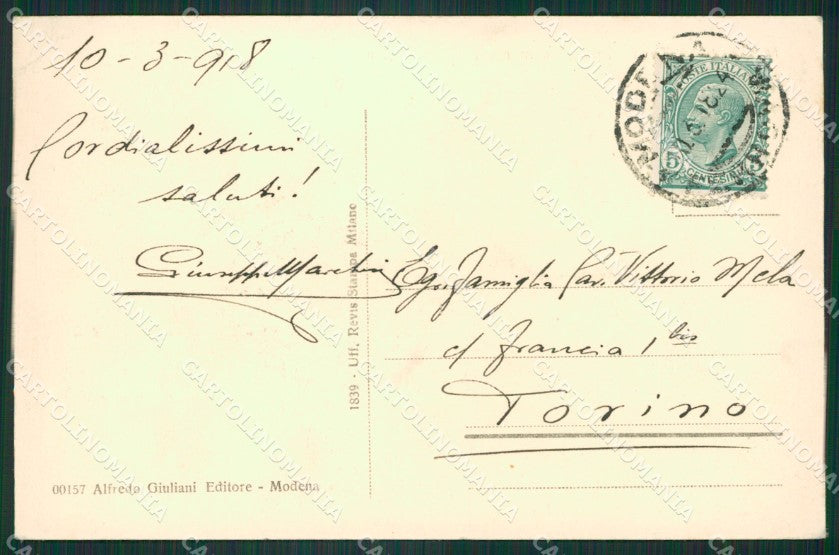 10-3-918
Cordialissimi
saluti!
Giuseppe Marchini
Egr. famiglia Cav. Vittorio Mela
c/ Francia 1 bis
Torino
1839 - Uff. Revis Stampa Milano
00157 Alfredo Giuliani Editore - Modena
MODENA
POSTE ITALIANE
5
CENTESIMI
CARTOLINOMANIA